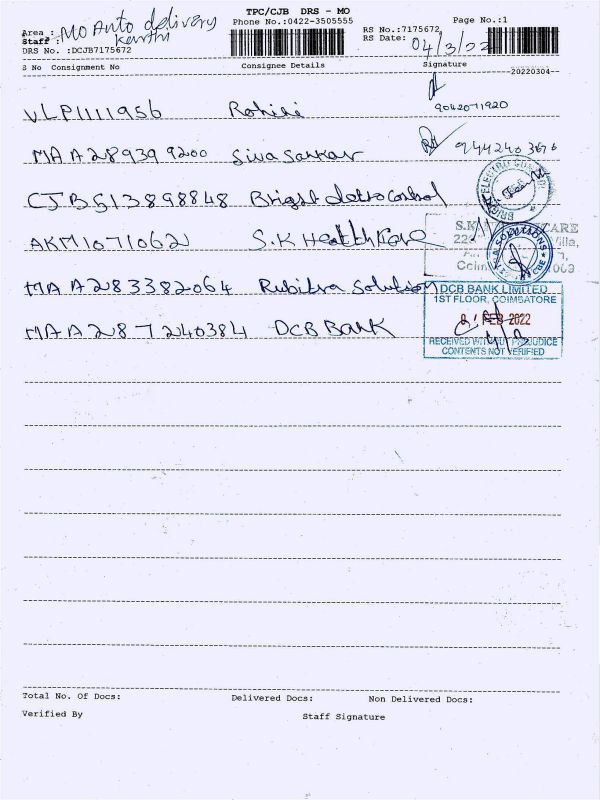 TPC/CJB DRS - MO
Phone No.:0422-3505555
Page No.:1
Area : MO Auto delivery
Staff : Karthi
DRS No. :DCJB7175672
RS No.:7175672
RS Date: 04/3/22
S No Consignment No Consignee Details Signature
20220304
VLP1111956 Rohini
9042071920
MAA289399200 Siva Sankar 944240 3676
CJB513898848 Bright electro control
AKM1071062 S.K Health Kare
MAA283382064 Rubitra Solution
MAA287240384 DCB Bank
DCB BANK LIMITED
1ST FLOOR, COIMBATORE
FEB 2022
RECEIVED WITHOUT PREJUDICE
CONTENTS NOT VERIFIED
Total No. Of Docs: Delivered Docs: Non Delivered Docs:
Verified By Staff Signature